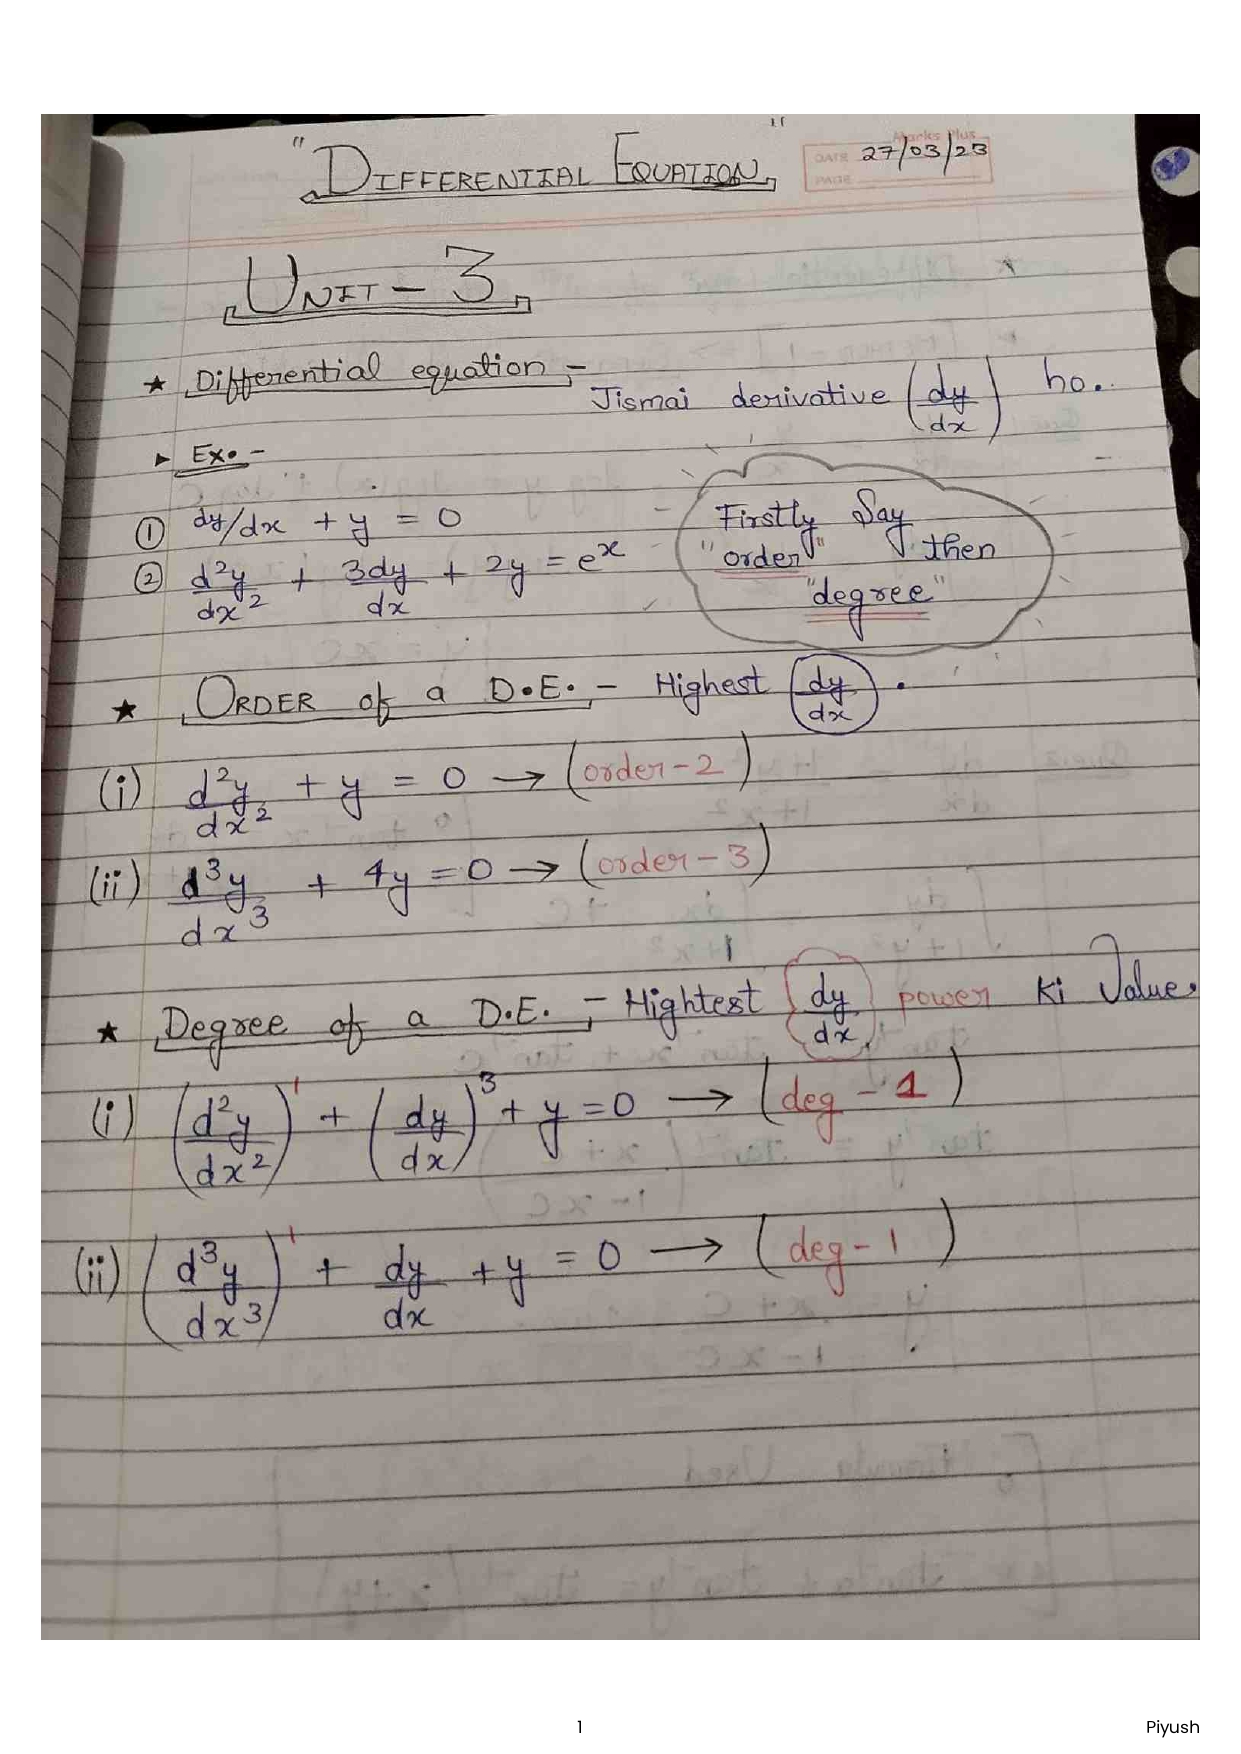 "DIFFERENTIAL EQUATION"
Marks Plus
DATE 27/03/23
PAGE
UNIT - 3
★ Differential equation :- Jismai derivative (dy/dx) ho.
► Ex. -
① dy/dx + y = 0
② d²y/dx² + 3dy/dx + 2y = eˣ
Firstly Say
"order" then
"degree"
★ ORDER of a D.E. - Highest (dy/dx).
(i) d²y/dx² + y = 0 → (order - 2)
(ii) d³y/dx³ + 4y = 0 → (order - 3)
★ Degree of a D.E. :- Hightest dy/dx power Ki Value.
(i) (d²y/dx²)¹ + (dy/dx)³ + y = 0 → (deg - 1)
(ii) (d³y/dx³)¹ + dy/dx + y = 0 → (deg - 1)
1
Piyush